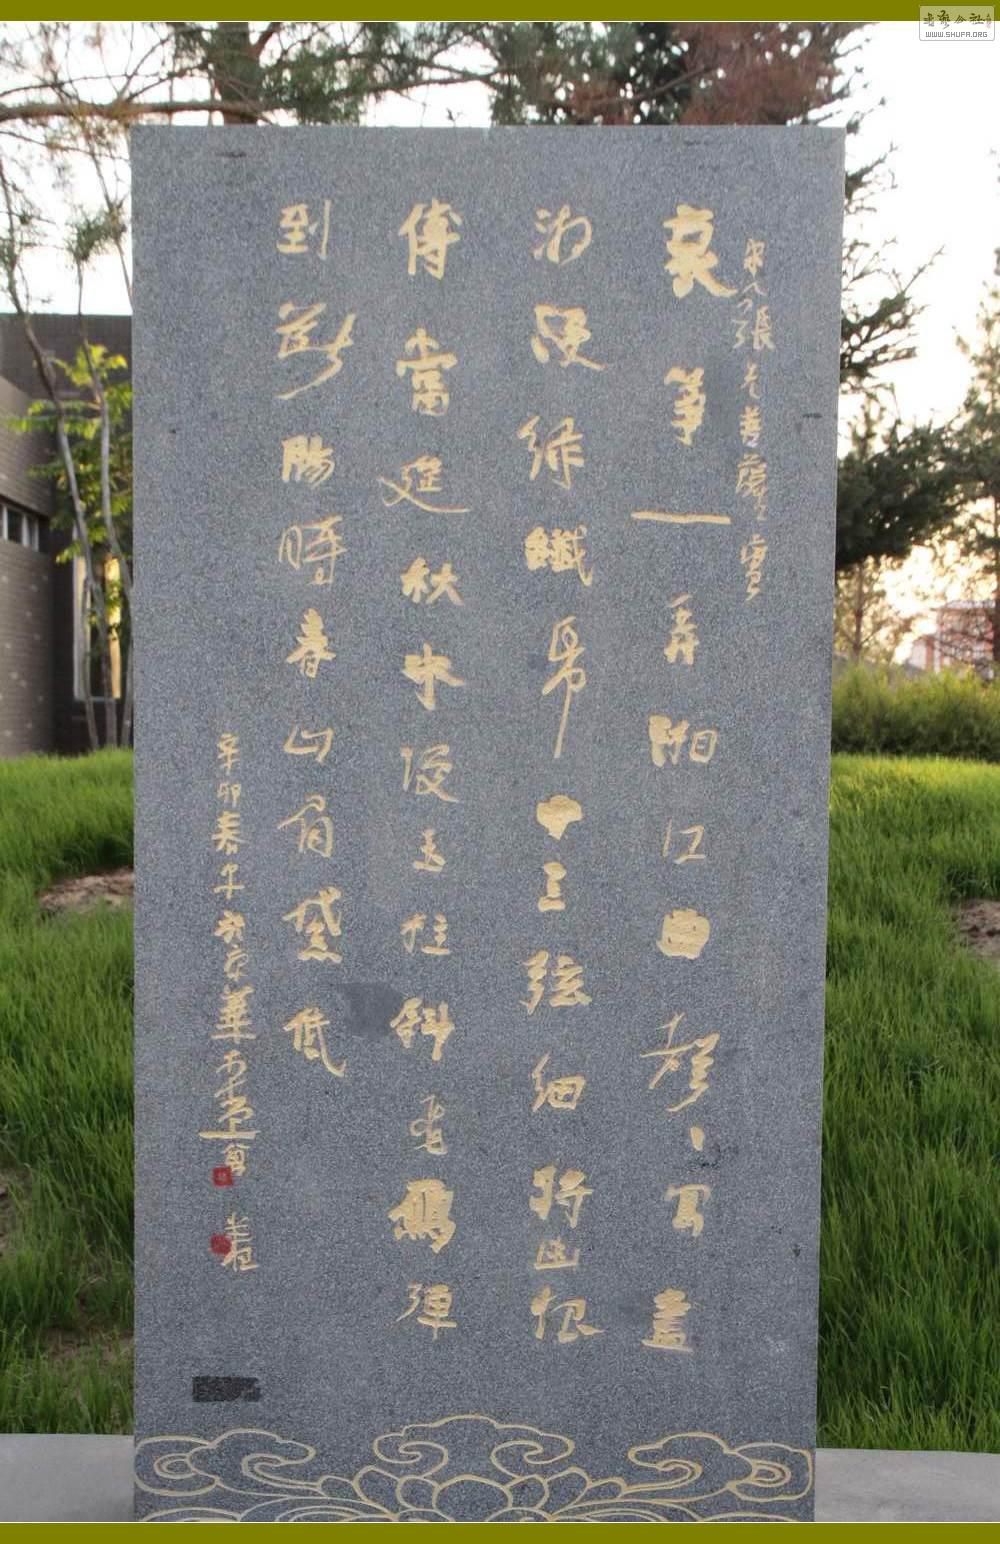 宋人張先菩薩蠻
哀箏一弄湘江曲聲、寫盡
湘波綠纖指十三弦細將幽恨
傳當筵秋水慢玉柱斜飛鴈彈
到斷腸時春山眉黛低
辛卯春 京華
WWW.SHUFA.ORG